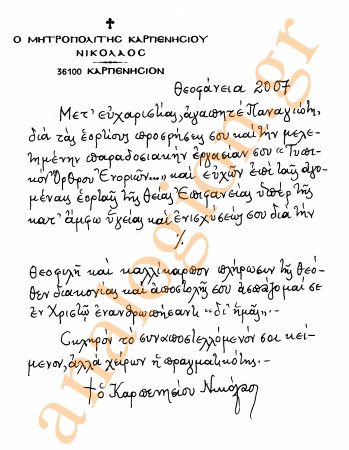 Ο ΜΗΤΡΟΠΟΛΙΤΗΣ ΚΑΡΠΕΝΗΣΙΟΥ
ΝΙΚΟΛΑΟΣ
36100 ΚΑΡΠΕΝΗΣΙΟΝ
Θεοφάνεια 2007
Μετ' εὐχαριστίας, ἀγαπητέ Παναγιώτη,
διά τάς ἑορτίους προσρήσεις σου καί τήν μελε-
τημένην παραδοσιακήν ἐργασίαν σου "Τυπι-
κόν Ὄρθρου Ἐνοριῶν..." καί εὐχῶν ἐπί ταῖς ἀγο-
μέναις ἑορταῖς τῆς θείας Ἐπιφανείας ὑπέρ τῆς
κατ' ἄμφω ὑγείας καί ἐνισχύσεώς σου διά τήν
./.
Θεοφιλῆ καί καλλίκαρπον πλήρωσιν τῆς θεό-
θεν διακονίας καί ἀποστολῆς σου ἀσπάζομαί σε
ἐν Χριστῷ ἐνανθρωπήσαντι "δι' ἡμᾶς".
Σκληρόν τό συναποστελλόμενόν σοι κεί-
μενον, ἀλλά χείρων ἡ πραγματικότης.-
† ὁ Καρπενησίου Νικόλαος
analogion.gr